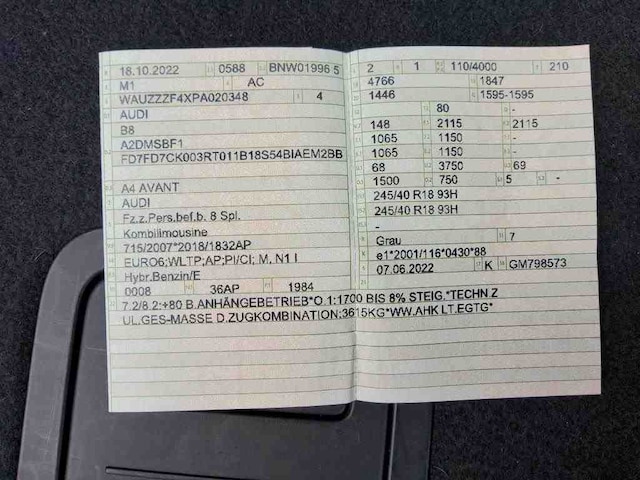 18.10.2022 0588 BNW01996 5
M1 AC
WAUZZZF4XPA020348 4
AUDI
B8
A2DMSBF1
FD7FD7CK003RT011B18S54BIAEM2BB
A4 AVANT
AUDI
Fz.z.Pers.bef.b. 8 Spl.
Kombilimousine
715/2007*2018/1832AP
EURO6;WLTP;AP;PI/CI; M, N1 I
Hybr.Benzin/E
0008 36AP 1984
2 1 110/4000 210
4766 1847
1446 1595-1595
80 -
148 2115 2115
1065 1150 -
1065 1150 -
68 3750 69
1500 750 5 -
245/40 R18 93H
245/40 R18 93H
-
Grau 7
e1*2001/116*0430*88
07.06.2022 K GM798573
7.2/8.2:+80 B.ANHÄNGEBETRIEB*O.1:1700 BIS 8% STEIG.*TECHN.Z
UL.GES-MASSE D.ZUGKOMBINATION:3615KG*WW.AHK LT.EGTG*